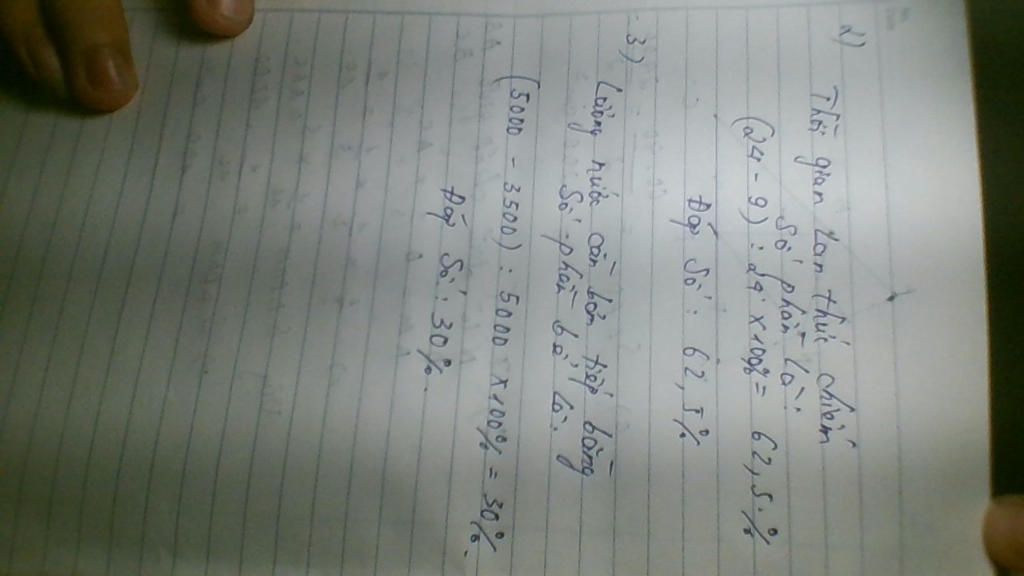 2) Thời gian Lan thức chiếm
Số phần là:
(24 - 9) : 24 x 100% = 62,5%
Đáp Số: 62,5%
3) Lượng nước cần bơm tiếp bằng
Số phần bể là:
(5000 - 3500) : 5000 x 100% = 30%.
Đáp Số: 30%.